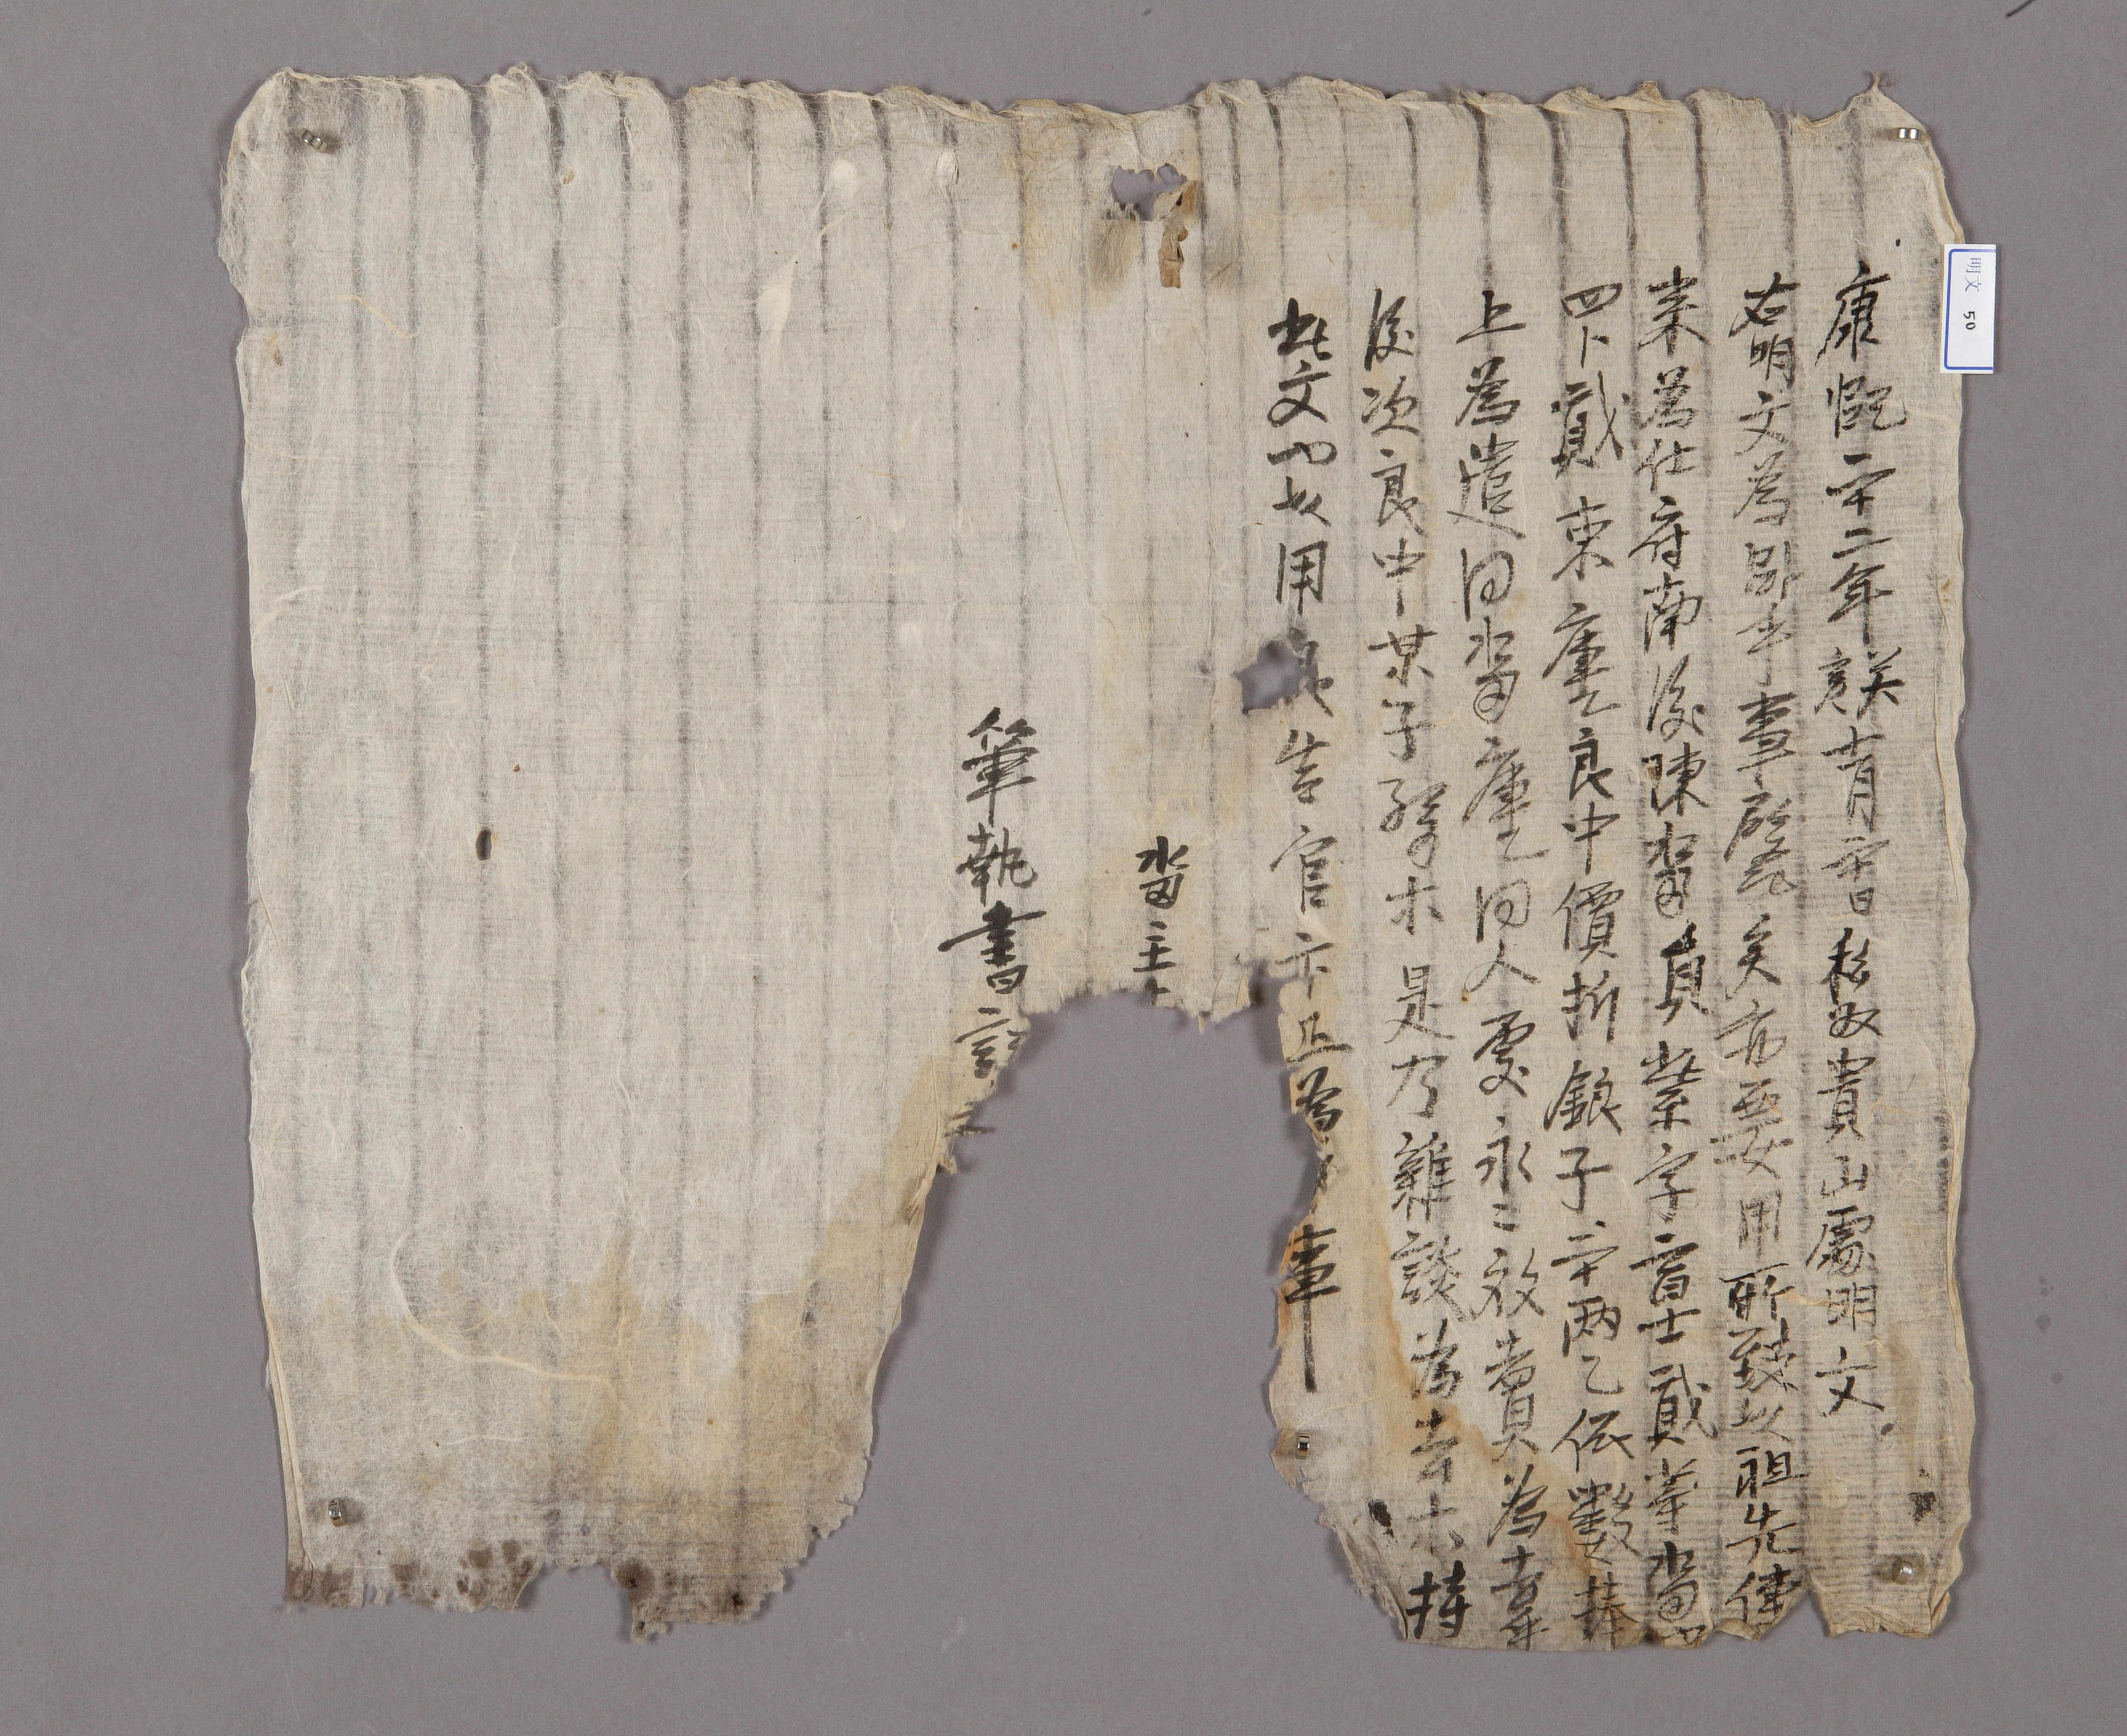 康熙二十二年癸亥十二月二十日私奴貴山處明文
右明文爲臥乎事段矣亦要用所致以祖先傳
来爲在府南後陳畓員業字畓十貳等畓
四卜貳束庫乙良中價折銀子二十兩乙依數捧
上爲遣同畓庫乙同人處永〻放賣爲去乎
後次良中某子孫木是乃雜談爲去木持
此文字乙用良告官卞正爲 事
畓主
筆執書証
明文 50